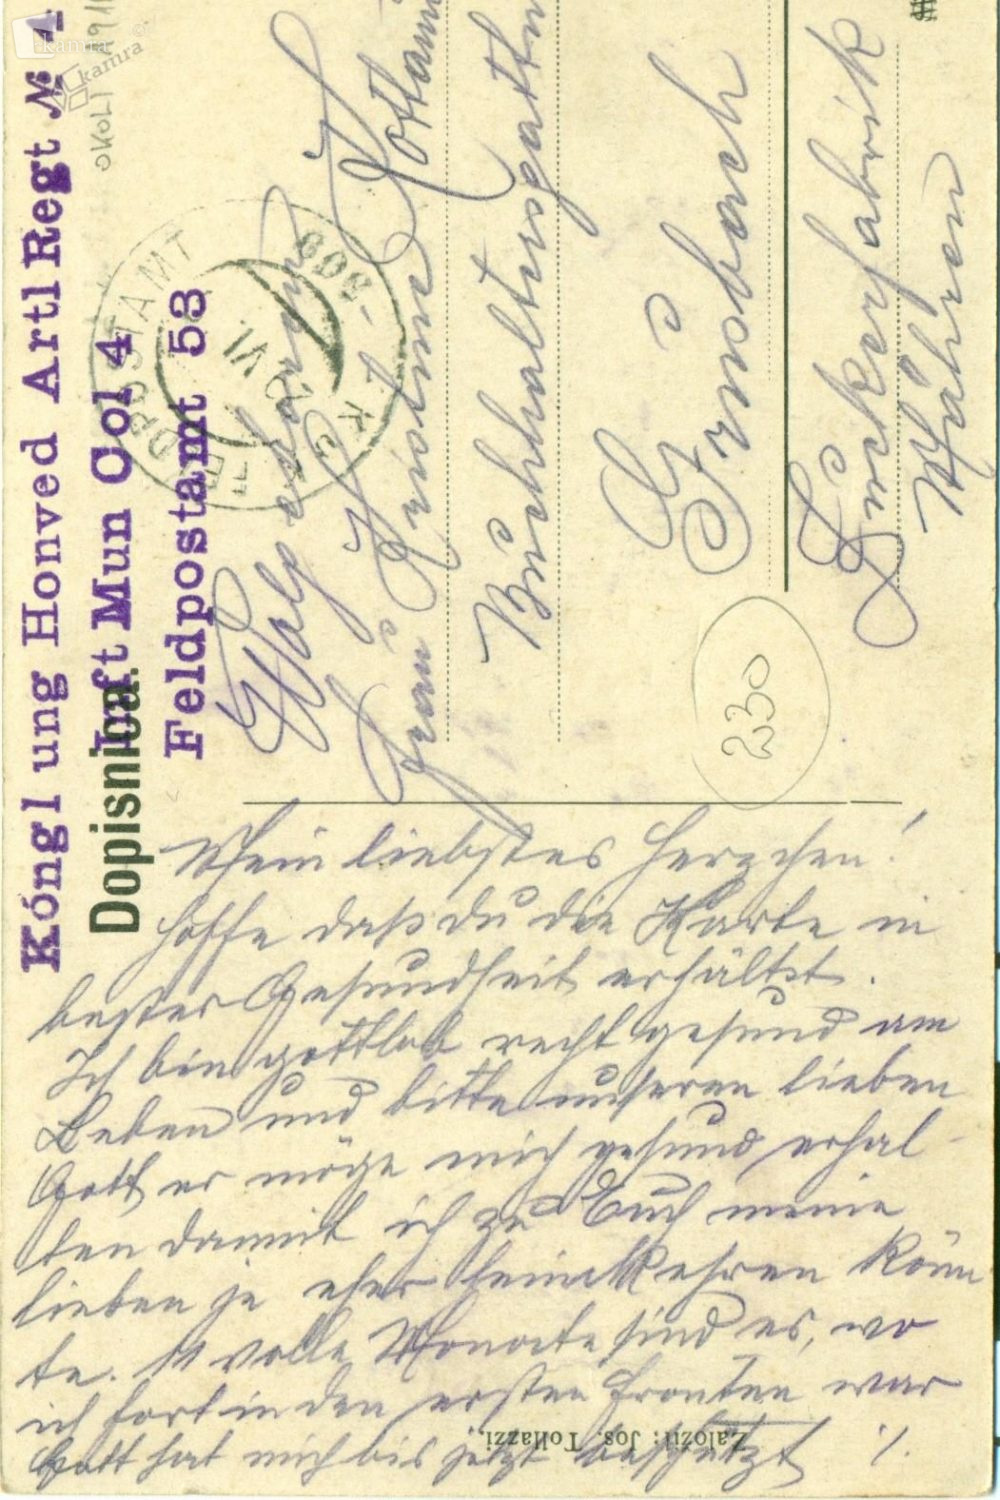 Kóngl ung Honved Artl Regt № 1
Inft Mun Col 4
Feldpostamt 53
Dopisnica.
FELDPOSTAMT
VI
309
Frau
Buchhaltersgattin
Grusbach
Zuckerfabrik
Mähren
230
Mein liebstes Herzchen!
Hoffe daß du die Karte in
bester Gesundheit erhältst.
Ich bin gottlob recht gesund am
Leben und bitte unseren lieben
Gott er möge mich gesund erhal-
ten damit ich zu Euch meine
lieben je eher heimkehren könn
te. 11 volle Monate sind es, wo
ich fort in den ersten Fronten war
Gott hat mich bis jetzt beschützt ./.
Založil: Jos. Tollazzi,
kamra
kamra